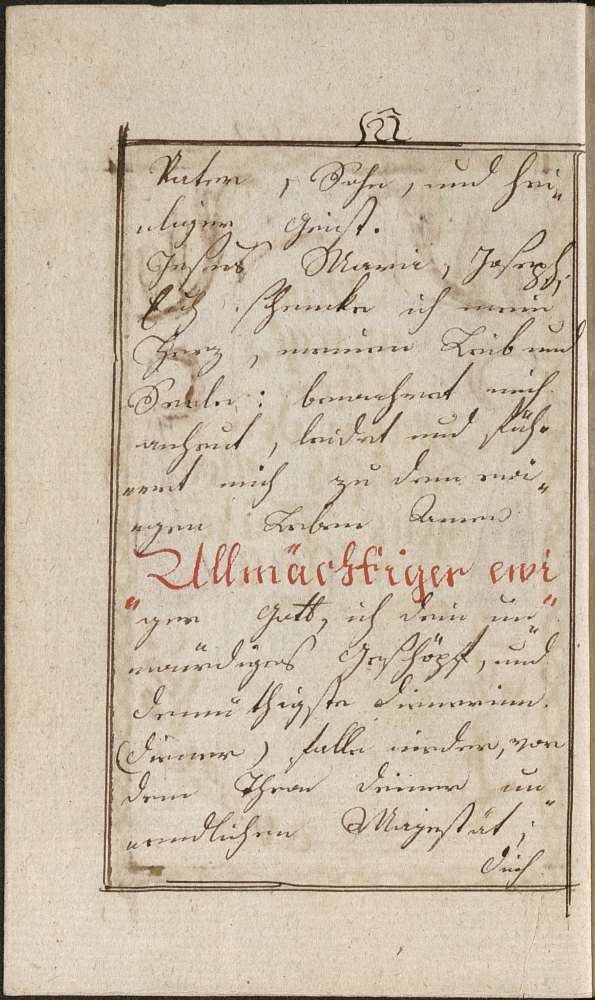 Vater, Sohn, und hei„
„liger Geist.
Jesus Maria, Joseph,
Euch schencke ich mein
Herz, meinen Leib und
Seele: bewahret mich
anheut, leidet und füh„
„ret mich zu dem ewi„
„gen Leben Amen
Allmächtiger ewi
„ger Gott, ich dein un„
würdiges Geschöpf, und
demüthigste Dienerinn.
(Diener) falle nieder, vor
dem Thron deiner un„
„endlichen Majestät,
dich